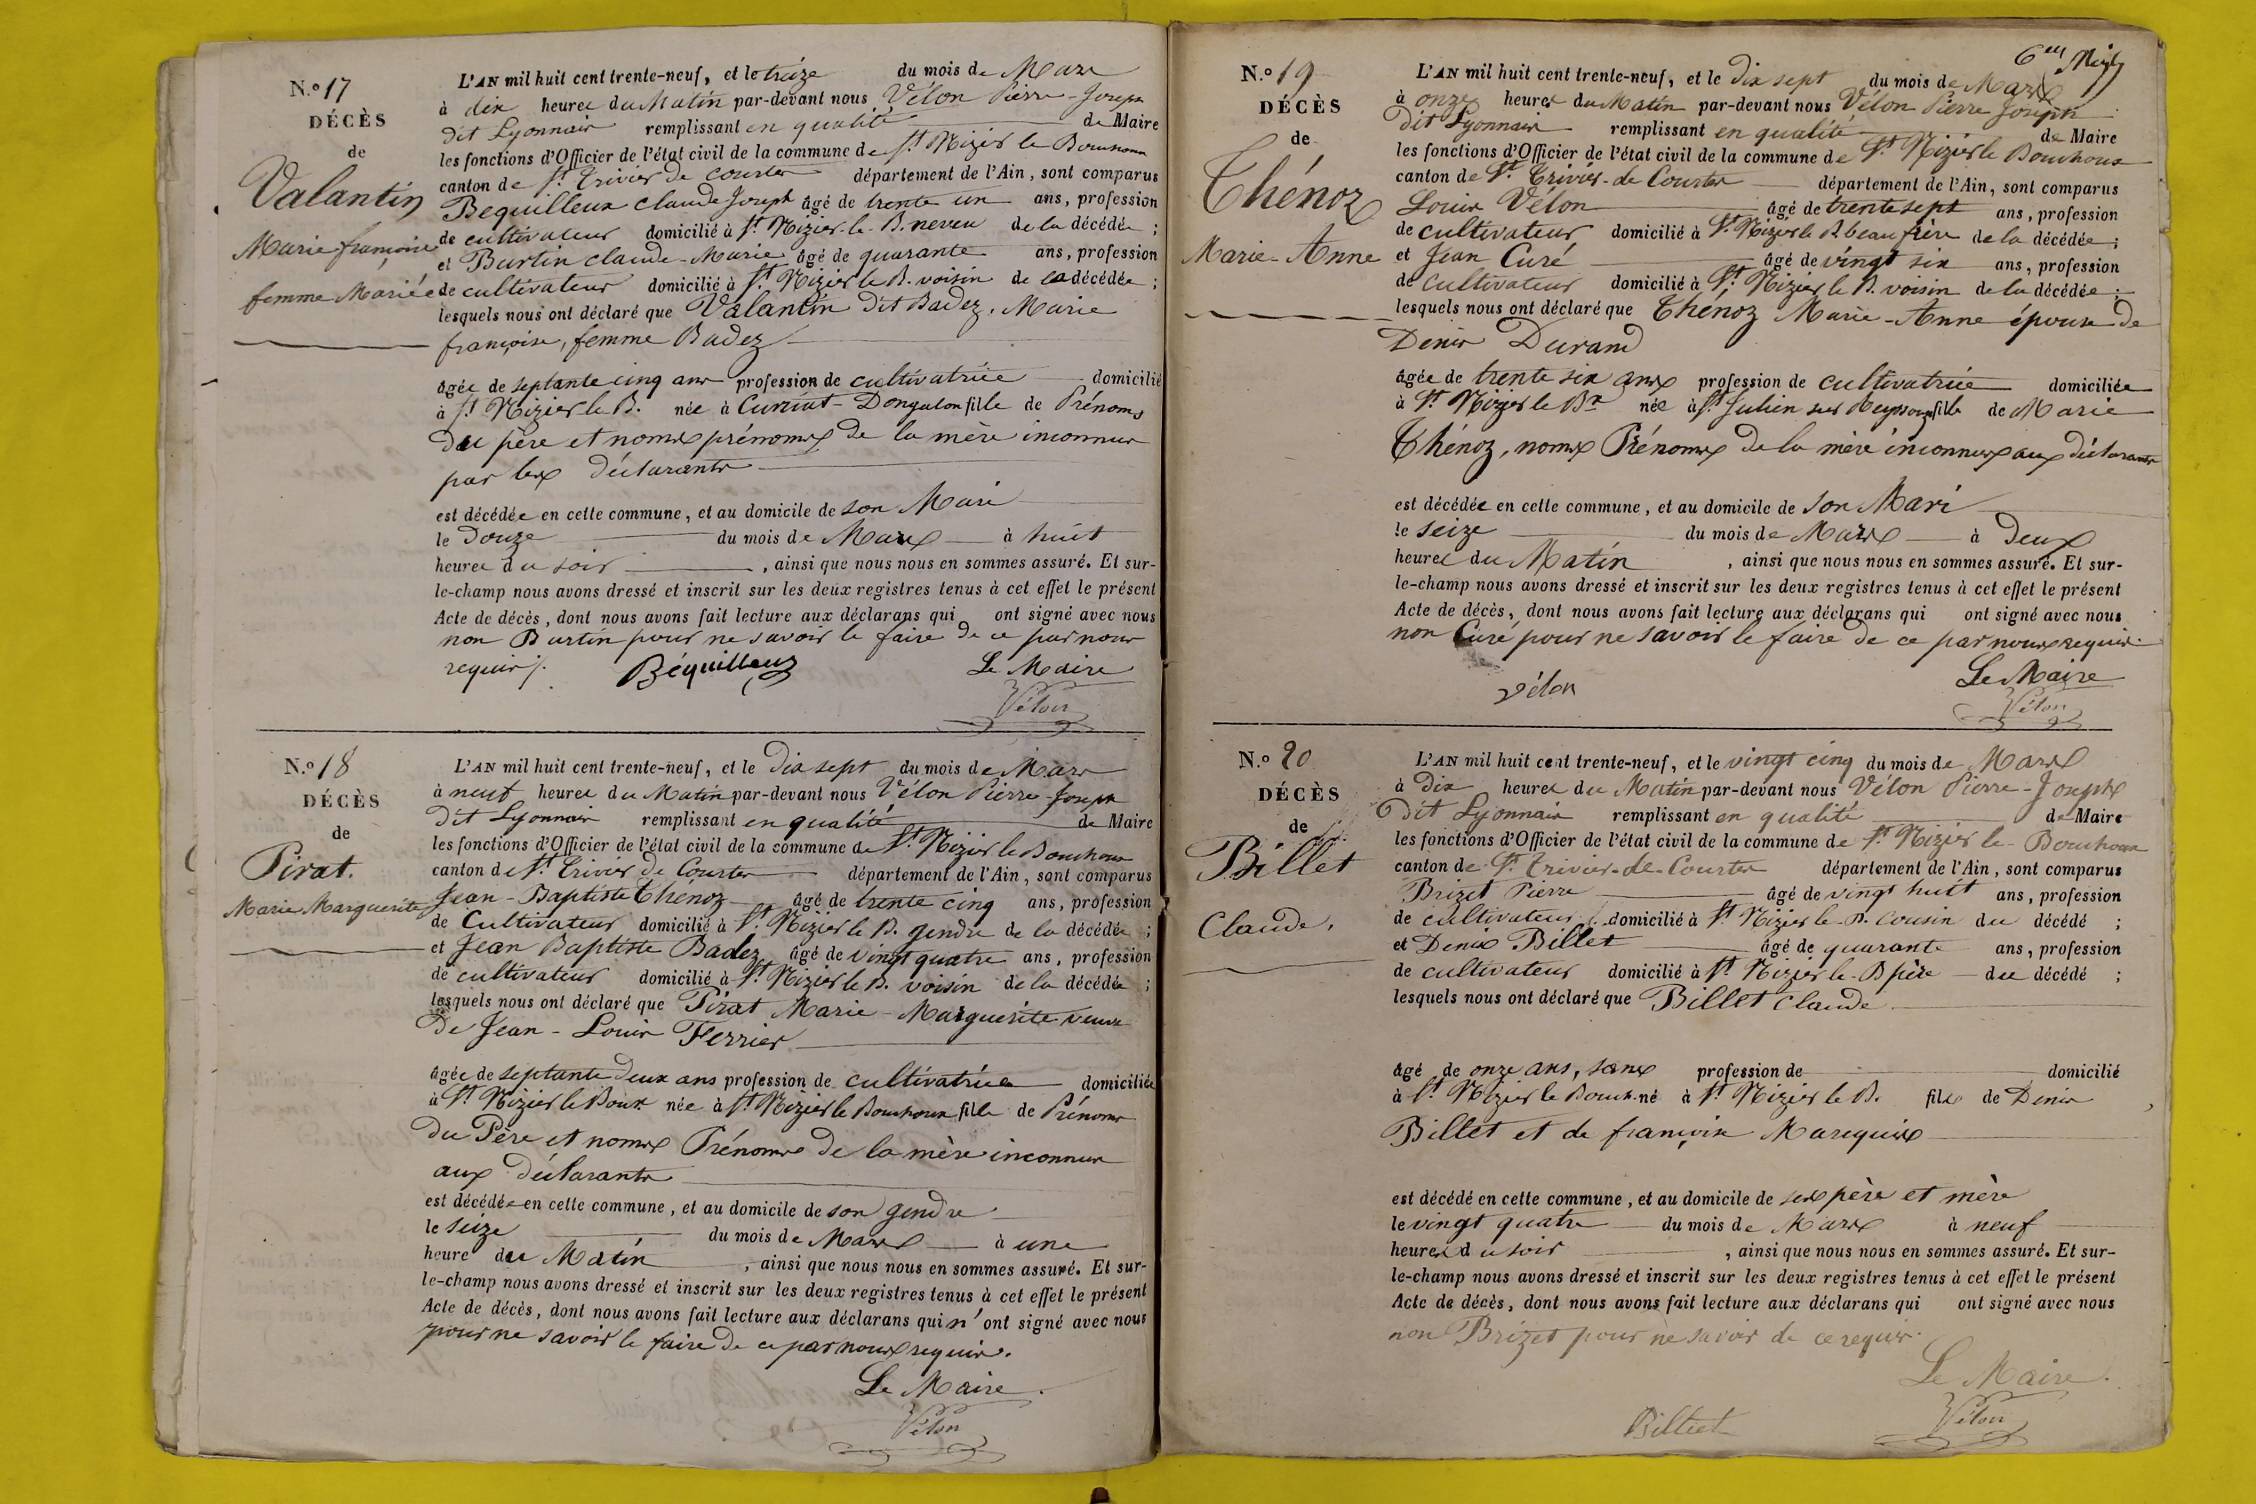 N.º 17
DÉCÈS
de
Valantin
Marie françoise
femme Mariée
L'AN mil huit cent trente-neuf, et le treize du mois de Mars
à dix heures du Matin par-devant nous Vélon Pierre-Joseph
dit Lyonnais remplissant en qualité de Maire
les fonctions d'Officier de l'état civil de la commune de St Nizier le Bouchoux
canton de St Trivier de Courtes département de l'Ain, sont comparus
Bequilleux Claude Joseph âgé de trente un ans, profession
de cultivateur domicilié à St Nizier-le-B. neveu de la décédée ;
et Burtin Claude-Marie âgé de quarante ans, profession
de cultivateur domicilié à St Nizier le B. voisin de la décédée ;
lesquels nous ont déclaré que Valantin dit Badez, Marie
françoise, femme Badez
âgée de septante cinq ans profession de cultivatrice domicilié
à St Nizier le B. née à Curciat-Dongalon fille de Prénoms
du père et noms prénoms de la mère inconnus
par les déclarants
est décédée en cette commune, et au domicile de son Mari
le Douze du mois de Mars à huit
heures du soir, ainsi que nous nous en sommes assuré. Et sur-
le-champ nous avons dressé et inscrit sur les deux registres tenus à cet effet le présent
Acte de décès, dont nous avons fait lecture aux déclarans qui ont signé avec nous
non Burtin pour ne savoir le faire de ce par nous
requis /. Béquilleux Le Maire
Vélon
N.º 18
DÉCÈS
de
Pirat.
Marie Marguerite
L'AN mil huit cent trente-neuf, et le Dix sept du mois de Mars
à neuf heures du Matin par-devant nous Vélon Pierre-Joseph
dit Lyonnais remplissant en qualité de Maire
les fonctions d'Officier de l'état civil de la commune de St Nizier le Bouchoux
canton de St Trivier de Courtes département de l'Ain, sont comparus
Jean-Baptiste Thénoz âgé de trente cinq ans, profession
de Cultivateur domicilié à St Nizier le B. gendre de la décédée ;
et Jean Baptiste Badez âgé de vingt quatre ans, profession
de cultivateur domicilié à St Nizier le B. voisin de la décédée ;
lesquels nous ont déclaré que Pirat Marie-Marguerite veuve
de Jean-Louis Ferrier
âgée de septante deux ans profession de cultivatrice domiciliée
à St Nizier le Boux née à St Nizier le Bouchoux fille de Prénoms
du Père et noms Prénoms de la mère inconnus
aux déclarants
est décédée en cette commune, et au domicile de son gendre
le seize du mois de Mars à une
heure du Matin, ainsi que nous nous en sommes assuré. Et sur-
le-champ nous avons dressé et inscrit sur les deux registres tenus à cet effet le présent
Acte de décès, dont nous avons fait lecture aux déclarans qui n'ont signé avec nous
pour ne savoir le faire de ce par nous requis.
Le Maire.
Vélon
6eu
N.º 19
DÉCÈS
de
Thénoz
Marie-Anne
L'AN mil huit cent trente-neuf, et le dix sept du mois de Mars
à onze heures du Matin par-devant nous Vélon Pierre Joseph
dit Lyonnais remplissant en qualité de Maire
les fonctions d'Officier de l'état civil de la commune de St Nizier le Bouchoux
canton de St Trivier-de Courtes département de l'Ain, sont comparus
Louis Vélon âgé de trente sept ans, profession
de cultivateur domicilié à St Nizier le B. beau frère de la décédée ;
et Jean Curé âgé de vingt six ans, profession
de cultivateur domicilié à St Nizier le B. voisin de la décédée ;
lesquels nous ont déclaré que Thénoz Marie-Anne épouse de
Denis Durand
âgée de trente six ans profession de cultivatrice domiciliée
à St Nizier le Bx née à St Julien sur Reyssouze fille de Marie
Thénoz, noms Prénoms de la mère inconnus aux déclarants
est décédée en cette commune, et au domicile de son Mari
le seize du mois de Mars à Deux
heures du Matin, ainsi que nous nous en sommes assuré. Et sur-
le-champ nous avons dressé et inscrit sur les deux registres tenus à cet effet le présent
Acte de décès, dont nous avons fait lecture aux déclarans qui ont signé avec nous
non Curé pour ne savoir le faire de ce par nous requis.
vélon Le Maire
Vélon
N.º 20
DÉCÈS
de
Billet
Claude.
L'AN mil huit cent trente-neuf, et le vingt cinq du mois de Mars
à Dix heures du Matin par-devant nous Vélon Pierre-Joseph
dit Lyonnais remplissant en qualité de Maire
les fonctions d'Officier de l'état civil de la commune de St Nizier le-Bouchoux
canton de St Trivier-de-Courtes département de l'Ain, sont comparus
Brizet Pierre âgé de vingt huit ans, profession
de cultivateur domicilié à St Nizier le-B. cousin du décédé ;
et Denis Billet âgé de quarante ans, profession
de cultivateur domicilié à St Nizier le-B père du décédé ;
lesquels nous ont déclaré que Billet Claude
âgé de onze ans, sans profession de domicilié
à St Nizier le Bouch. né à St Nizier le B. fils de Denis
Billet et de françoise Marequis
est décédé en cette commune, et au domicile de ses père et mère
le vingt quatre du mois de Mars à neuf
heures du soir, ainsi que nous nous en sommes assuré. Et sur-
le-champ nous avons dressé et inscrit sur les deux registres tenus à cet effet le présent
Acte de décès, dont nous avons fait lecture aux déclarans qui ont signé avec nous
non Brizet pour ne savoir de ce requis.
Le Maire.
Billiet Vélon